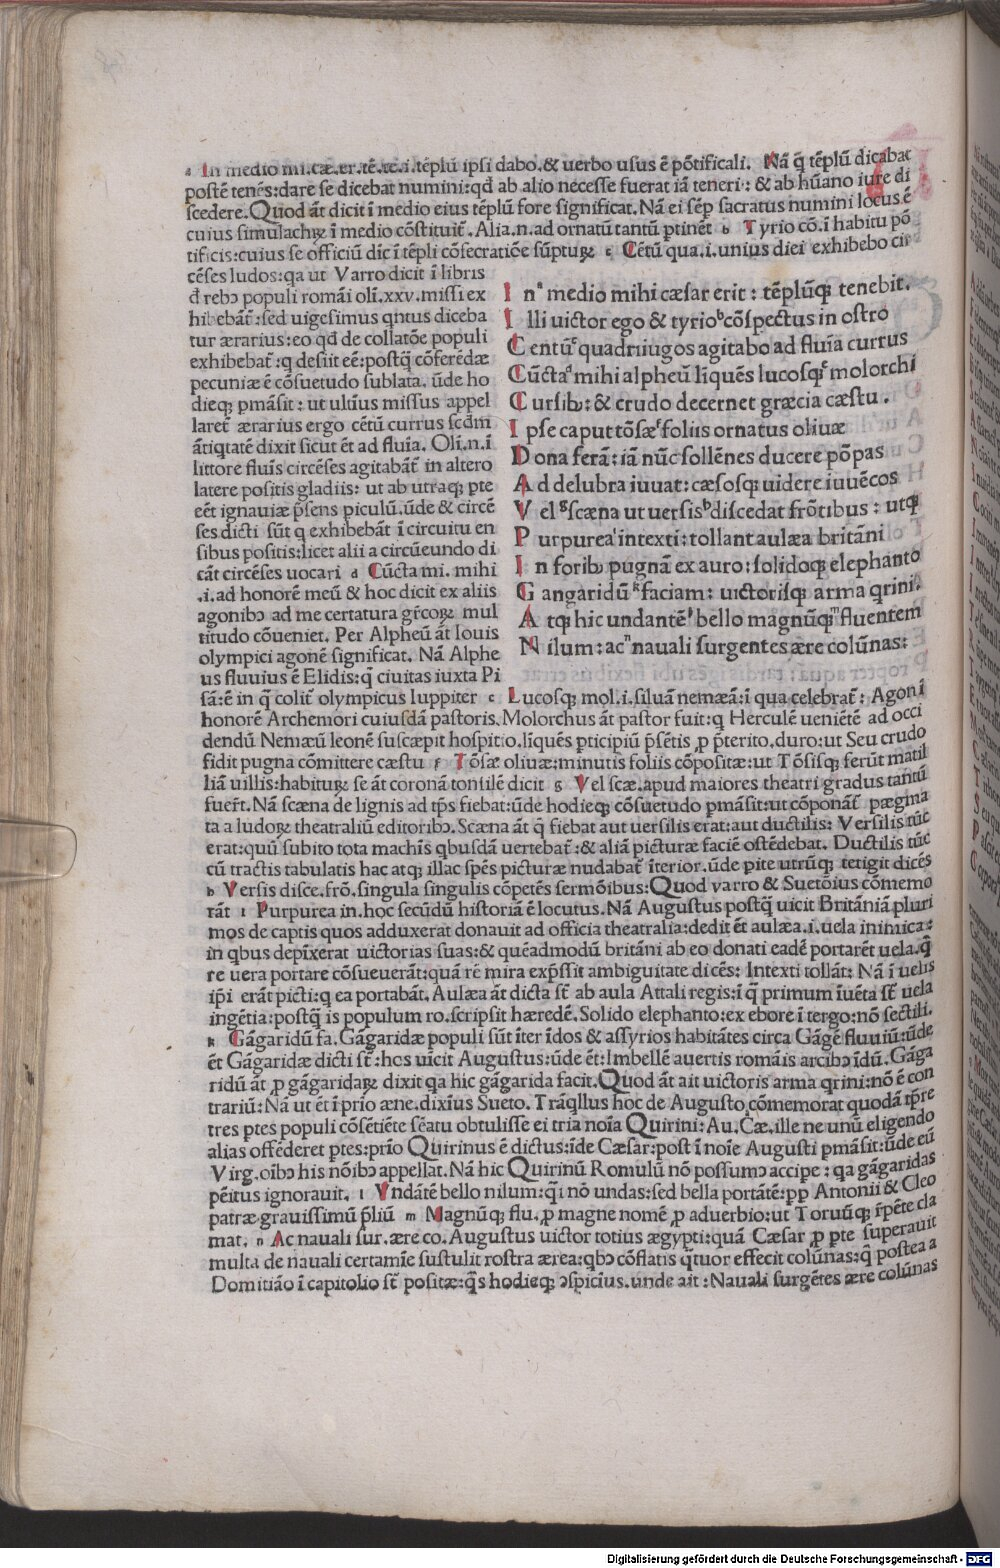 a In medio mi. cæ. er. tē. te. i. tēplū ipsi dabo. & uerbo usus ē pōtificali. Nā q̄ tēplū dicabāt
postē tenēs: dare se dicebat numini: qd̄ ab alio necesse fuerat iā teneri: & ab hūano iure di
scedere. Quod āt dicit ī medio eius tēplū fore significat. Nā ei sēp sacratus numini locus ē
cuius simulachꝝ ī medio cōstituit̄. Alia. n. ad ornatū tantū ptinēt b Tyrio cō. ī habitu pō
tificis: cuius se officiū dīc ī tēpli cōsecratiōe sūptuꝝ c Cētū qua. i. unius diei exhibebo cir
cēses ludos: qa ut Varro dicit ī libris
đ rebꝯ populi romāi olī. xxv. missi ex
hibebāt̄: sed uigesimus qntus diceba
tur ærarius: eo qd̄ de collatōe populi
exhibebat̄: q desiit eē: postq̄ cōferēdæ
pecuniæ ē cōsuetudo sublata. ūde ho
dieqꝫ pmāsit: ut ultīus missus appel
laret̄ ærarius ergo cētū currus scdm
āntiqtatē dixit sicut ēt ad fluīa. Olī. n. ī
littore fluīs circēses agitabāt̄ in altero
latere positis gladiis: ut ab utraqꝫ pte
eēt ignauiæ p̄sens piculū. ūde & circē
ses dicti sūt q exhibebāt ī circuitu en
sibus positis: licet alii a circūeundo di
cāt circēses uocari d Cūcta mi. mihi
.i. ad honorē meū & hoc dicit ex aliis
agonibꝯ ad me certatura gr̄coꝝ mul
titudo cōueniet. Per Alpheū āt Iouis
olympici agonē significat. Nā Alphe
us fluuius ē Elidis: q̄ ciuitas iuxta Pi
sā: ē in q̄ colit̄ olympicus Iuppiter e Lucosqꝫ mol. i. siluā nemæā: ī qua celebrat̄: Agon ī
I nᵃ medio mihi cæsar erit: tēplūqꝫ tenebit.
I lli uictor ego & tyrioᵇ cōspectus in ostro
C entūᶜ quadriiugos agitabo ad fluīa currus
C ūctaᵈ mihi alpheū līquēs lucosqꝫᵉ molorchi
C ursibꝫ: & crudo decernet græcia cæstu.
I pse caput tōsæᶠ foliis ornatus oliuæ
D ona ferā: iā nūc sollēnes ducere pōpas
A d delubra iuuat: cæsosqꝫ uidere iuuēcos
V elᵍ scæna ut uersisʰ discedat frōtibus: utqꝫ
P urpureaⁱ intexti: tollant aulæa britāni
I n foribꝫ pugnā ex auro: solidoqꝫ elephanto
G angaridūᵏ faciam: uictorisqꝫ arma qrini.
A tqꝫ hic undantēˡ bello magnūqꝫᵐ fluentem
N ilum: acⁿ nauali surgentes ære colūnas:
honorē Archemori cuiusdā pastoris. Molorchus āt pastor fuit: q Herculē ueniētē ad occi
dendū Nemæū leonē suscæpit hospitio. līquēs pticipiū p̄sētis ꝓ p̄terito. duro: ut Seu crudo
fidit pugna cōmittere cæstu f Tōsæ oliuæ: minutis foliis cōpositæ: ut Tōsisqꝫ ferūt mātil
liā uillis: habituꝝ se āt coronā tonsilē dicit g Vel scæ. apud maiores theatri gradus tantū
fuer̄t. Nā scæna de lignis ad tp̄s fiebat: ūde hodieqꝫ cōsuetudo pmāsit: ut cōponāt̄ pægma
ta a ludoꝝ theatraliū editoribꝯ. Scæna āt q̄ fiebat aut uersilis erat: aut ductilis: Versilis tūc
erat: quū subito tota machīs qbusdā uertebat̄: & aliā picturæ faciē ostēdebat. Ductilis tūc
cū tractis tabulatis hac atqꝫ illac spēs picturæ nudabat̄ īterior. ūde pite utrūqꝫ tetigit dicēs
h Versis disce. frō. singula singulis cōpetēs sermōibus: Quod varro & Suetōius cōmemo
rāt i Purpurea in. hoc secūdū historiā ē locutus. Nā Augustus postq̄ uicit Britāniā pluri
mos de captis quos adduxerat donauit ad officia theatralia: dedit ēt aulæa. i. uela inimica:
in qbus depīxerat uictorias suas: & quēadmodū britāni ab eo donati eadē portarēt uela. q̄
re uera portare cōsueuerāt: quā rē mira exp̄ssit ambiguitate dicēs: Intexti tollāt: Nā ī uelis
ip̄i erāt picti: q ea portabāt. Aulæa āt dicta st̄ ab aula Attali regis: ī q̄ primum īuēta st̄ uela
ingētia: postq̄ is populum ro. scripsit hæredē. Solido elephanto: ex ebore ī tergo: nō sectili.
k Gāgaridū fa. Gāgaridæ populi sūt īter īdos & assyrios habitātes circa Gāgē fluuiū: ūde
ēt Gāgaridæ dicti st̄: hos uīcit Augustus: ūde ēt: Imbellē auertis romāis arcibꝯ īdū. Gāga
ridū āt ꝓ gāgaridaꝝ dixit qa hic gāgarida facit. Quod āt ait uictoris arma qrini: nō ē con
trariū: Nā ut ēt ī prīo æne. dixīus Sueto. Trāqllus hoc de Augusto cōmemorat quodā tp̄re
tres ptes populi cōsētiēte sēatu obtulisse ei tria noīa Quirini: Au. Cæ. ille ne unū eligendo
alias offēderet ptes: prīo Quirinus ē dictus: īde Cæsar: post ī noīe Augusti pmāsit: ūde eū
Virg. oībꝯ his nōībꝯ appellat. Nā hic Quirinū Romulū nō possumꝯ accipe: qa gāgaridas
pēitus ignorauit. l Vndātē bello nilum: q̄i nō undas: sed bella portātē: pp Antonii & Cleo
patræ grauissimū p̄liū m Magnūqꝫ flu. ꝓ magne nomē ꝓ aduerbio: ut Toruūqꝫ r̄pēte cla
mat. n Ac nauali sur. ære co. Augustus uictor totius ægypti: quā Cæsar ꝓ pte superauit
multa de nauali certamīe sustulit rostra ærea: qbꝯ cōflatis q̄tuor effecit colūnas: q̄ postea a
Domitiāo ī capitolio st̄ positæ: q̄s hodieqꝫ ꝯspicius. unde ait: Nauali surgētes ære colūnas
Digitalisierung gefördert durch die Deutsche Forschungsgemeinschaft - DFG